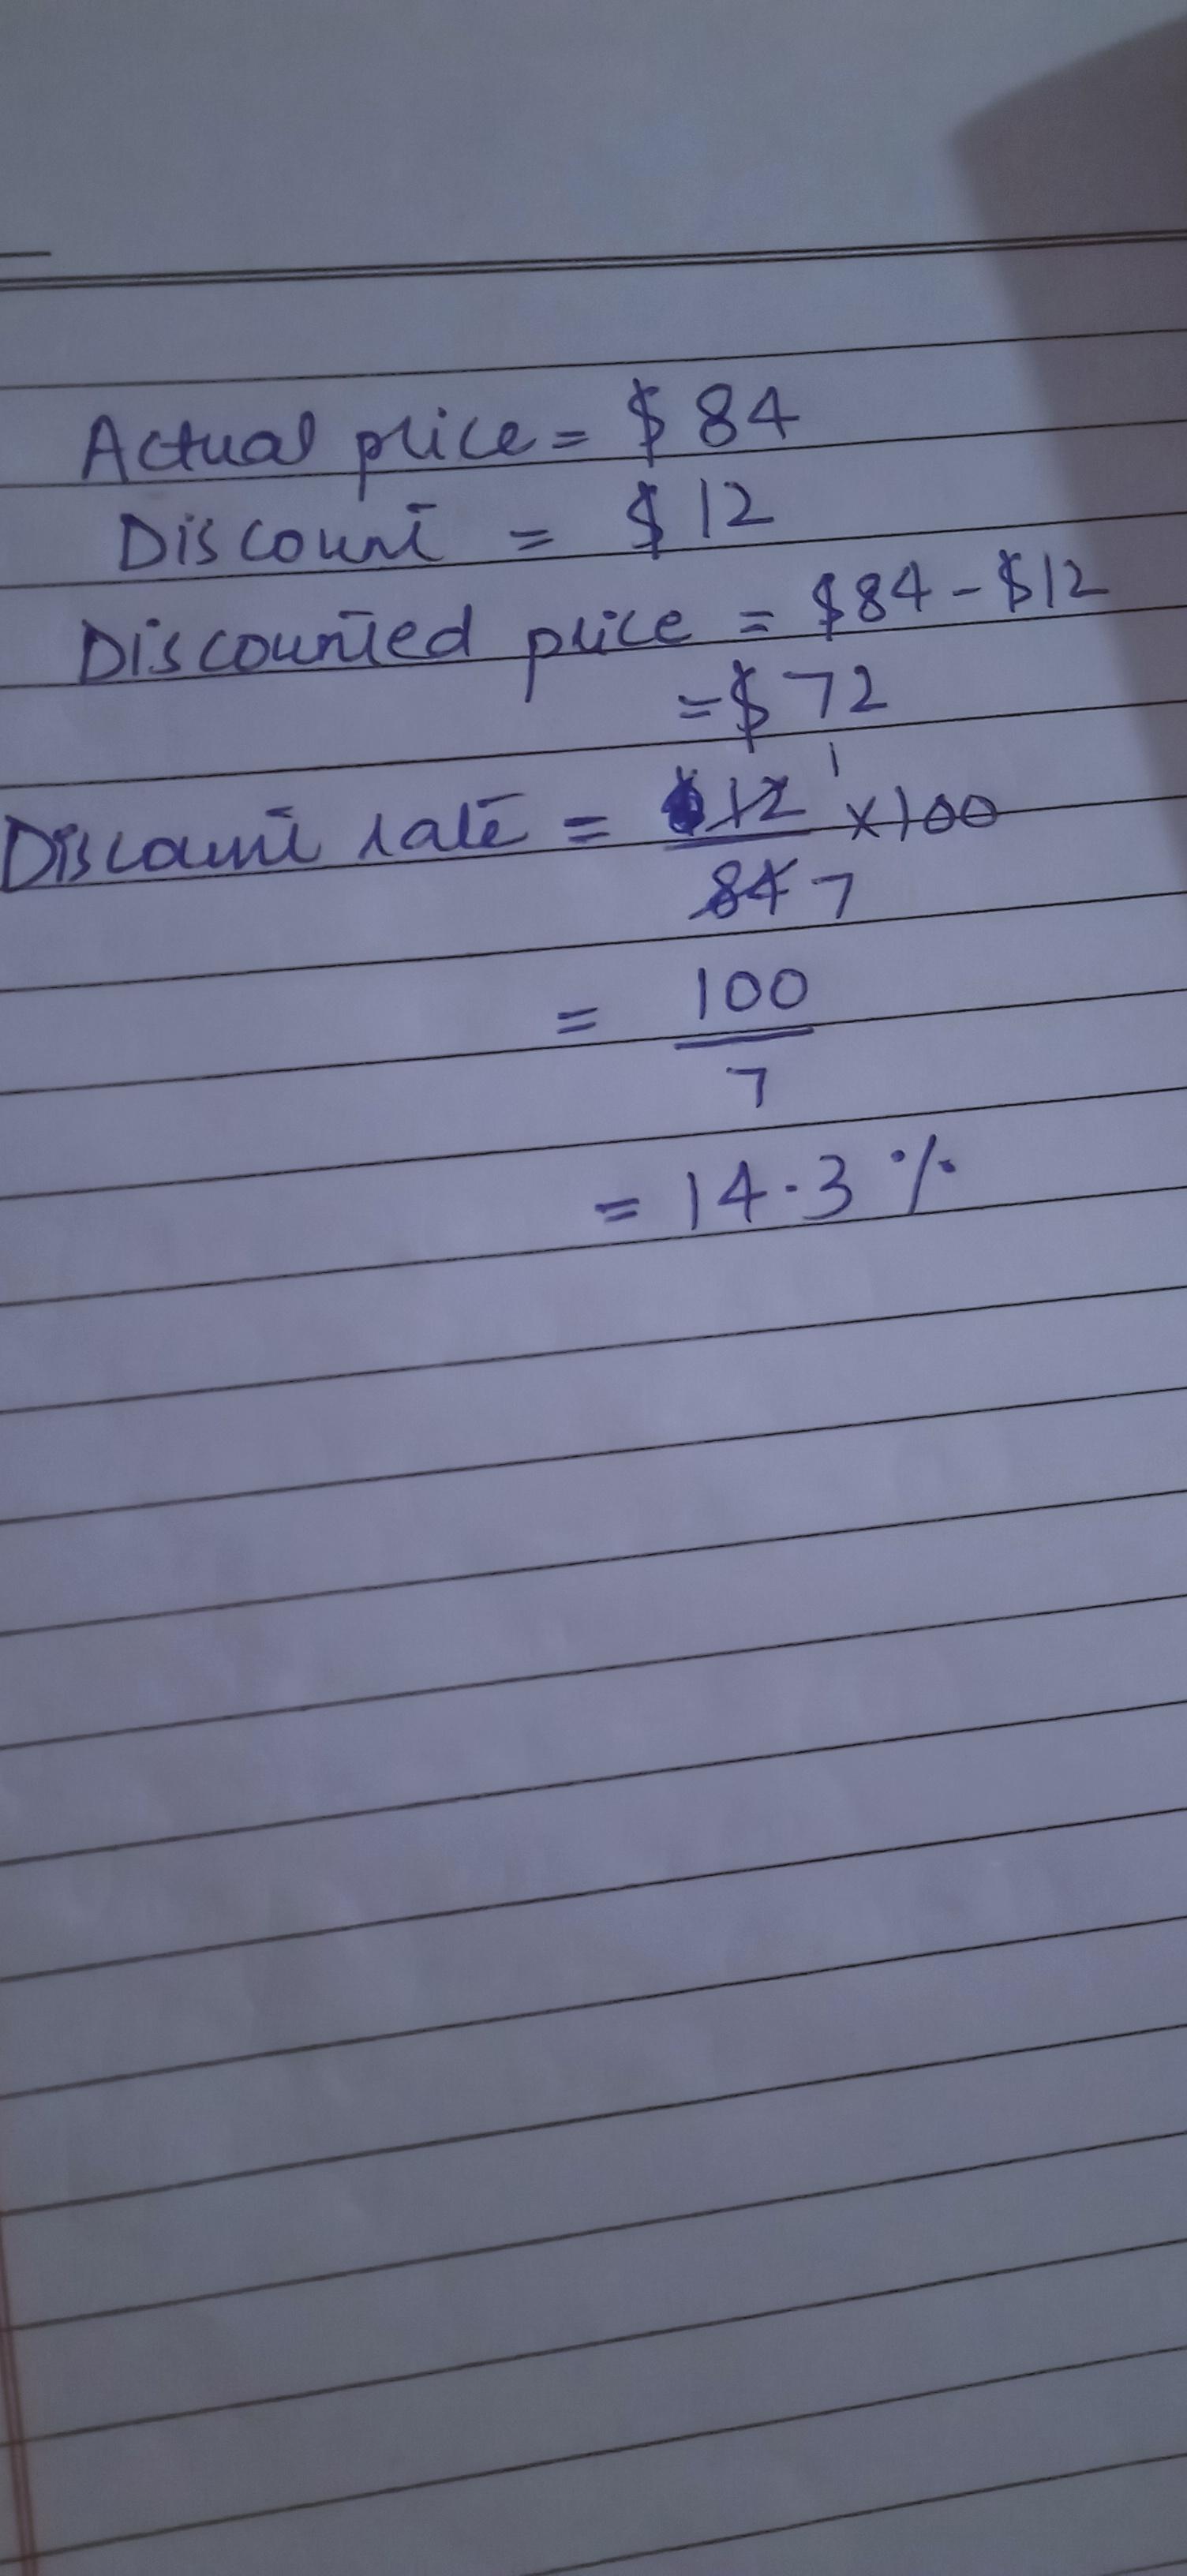 Actual price = $ 84
Discount = $ 12
Discounted price = $84 - $12
= $ 72
Discount rate = 12 1 x100
84 7
= 100
7
= 14.3 %